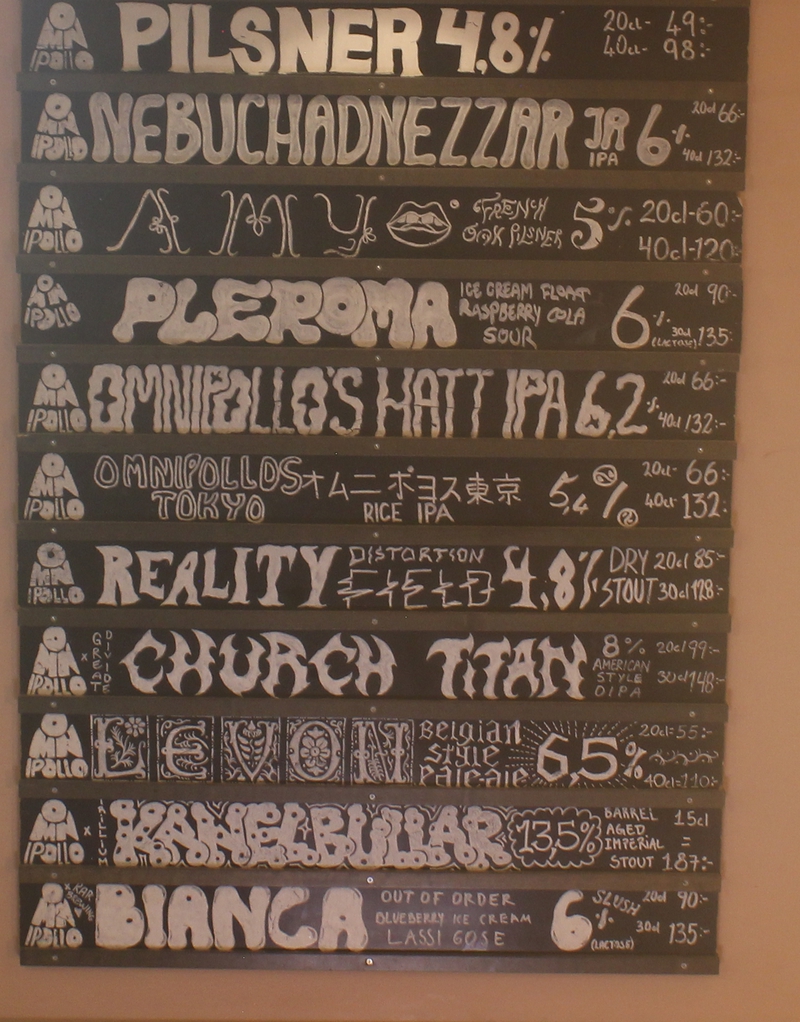 OMNIPOLLO PILSNER 4,8% 20cl- 49:-
40cl- 98:-
OMNIPOLLO NEBUCHADNEZZAR JR IPA 6% 20cl 66:-
40cl 132:-
OMNIPOLLO AMY FRENCH OAK PILSNER 5% 20cl-60:-
40cl-120:-
OMNIPOLLO PLEROMA ICE CREAM FLOAT 6% 20cl 90:-
RASPBERRY COLA
SOUR (LACTOSE) 30cl 135:-
OMNIPOLLO OMNIPOLLO'S HATT IPA 6,2% 20cl 66:-
40cl 132:-
OMNIPOLLO OMNIPOLLOS TOKYO オムニポヨス東京 5,4% 20cl- 66:-
RICE IPA 40cl- 132:-
OMNIPOLLO REALITY DISTORTION FIELD 4,8% DRY STOUT 20cl 85:-
30cl 128:-
OMNIPOLLO x GREAT DIVIDE CHURCH TITAN 8% 20cl 99:-
AMERICAN
STYLE
DIPA 30cl 148:-
OMNIPOLLO LEVON Belgian style Pale-ale 6,5% 20cl=55:-
40cl=110:-
OMNIPOLLO x TRILLIUM KANELBULLAR 13,5% BARREL AGED IMPERIAL STOUT 15cl = 187:-
OMNIPOLLO x BREWING BIANCA OUT OF ORDER 6% SLUSH 20cl 90:-
BLUEBERRY ICE CREAM
LASSI GOSE (LACTOSE) 30cl 135:-